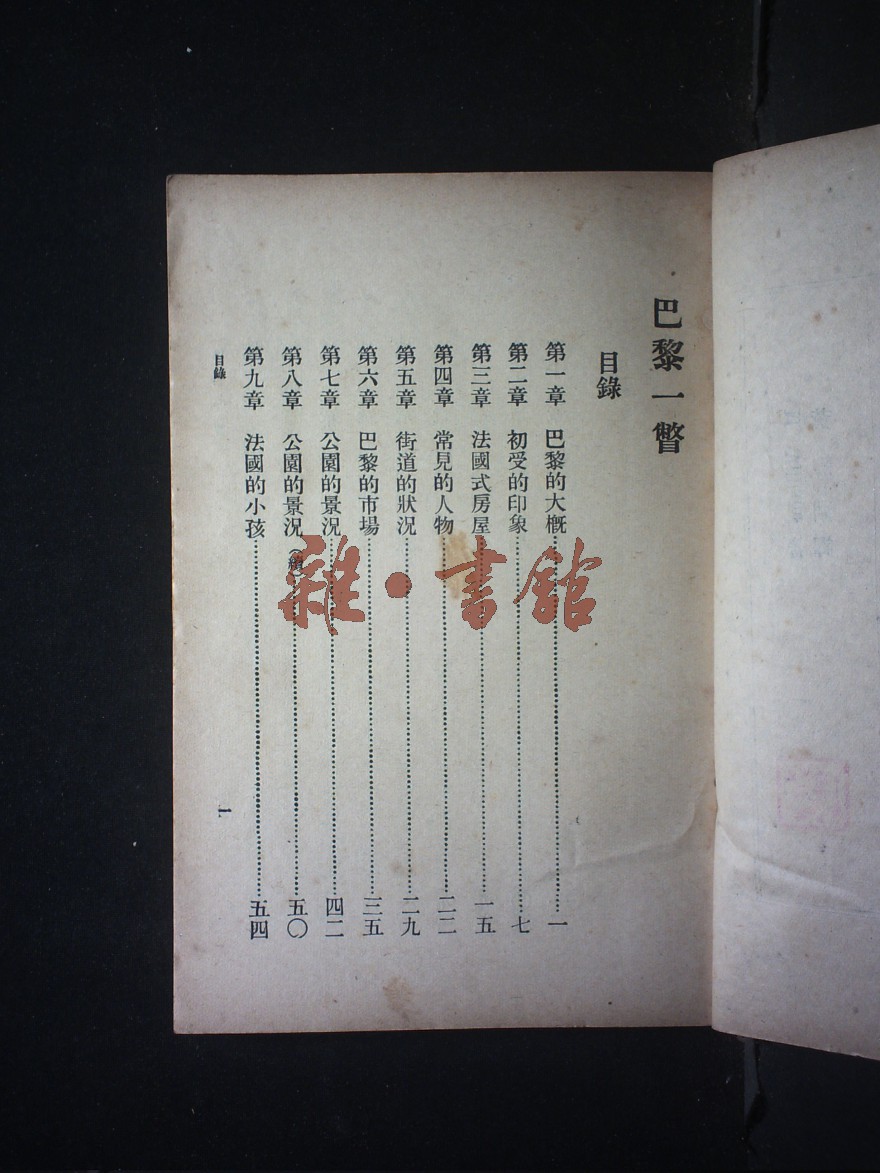 巴黎一瞥
目錄
第一章　巴黎的大概……一
第二章　初受的印象……七
第三章　法國式房屋……一五
第四章　常見的人物……二二
第五章　街道的狀況……二九
第六章　巴黎的市場……三五
第七章　公園的景況……四二
第八章　公園的景況（續）……五〇
第九章　法國的小孩……五四
目錄
一
雜·書館